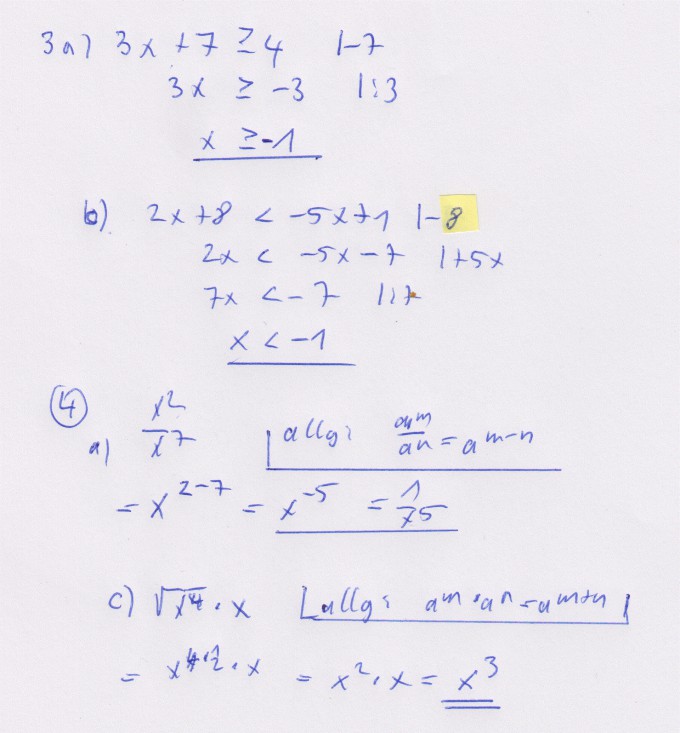 3a) 3x + 7 ≥ 4 |-7
3x ≥ -3 |:3
x ≥ -1
b) 2x + 8 < -5x + 1 |-8
2x < -5x - 7 |+5x
7x < -7 |:7
x < -1
④
a) x²/x⁷ allg: aᵐ/aⁿ = aᵐ⁻ⁿ
= x²⁻⁷ = x⁻⁵ = 1/x⁵
c) √x⁴ · x allg: aᵐ · aⁿ = aᵐ⁺ⁿ
= x^(4·1/2) · x = x² · x = x³